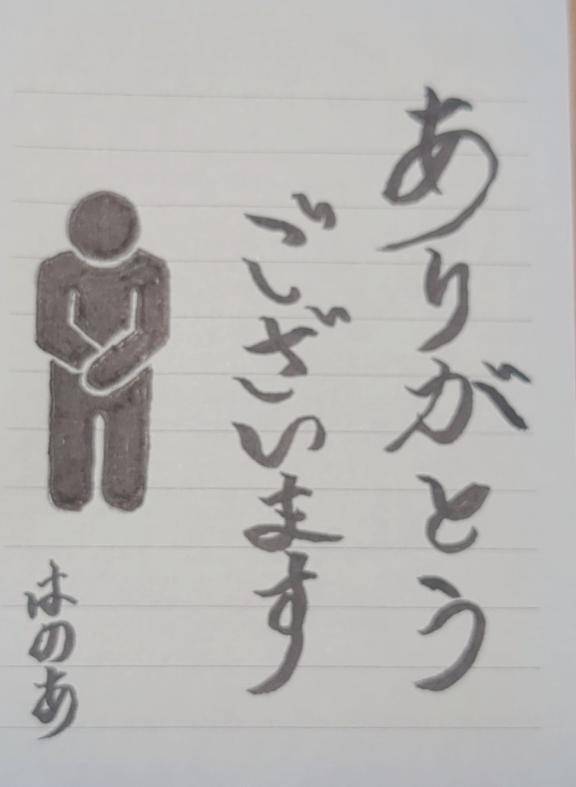 ありがとう
ございます
はのあ